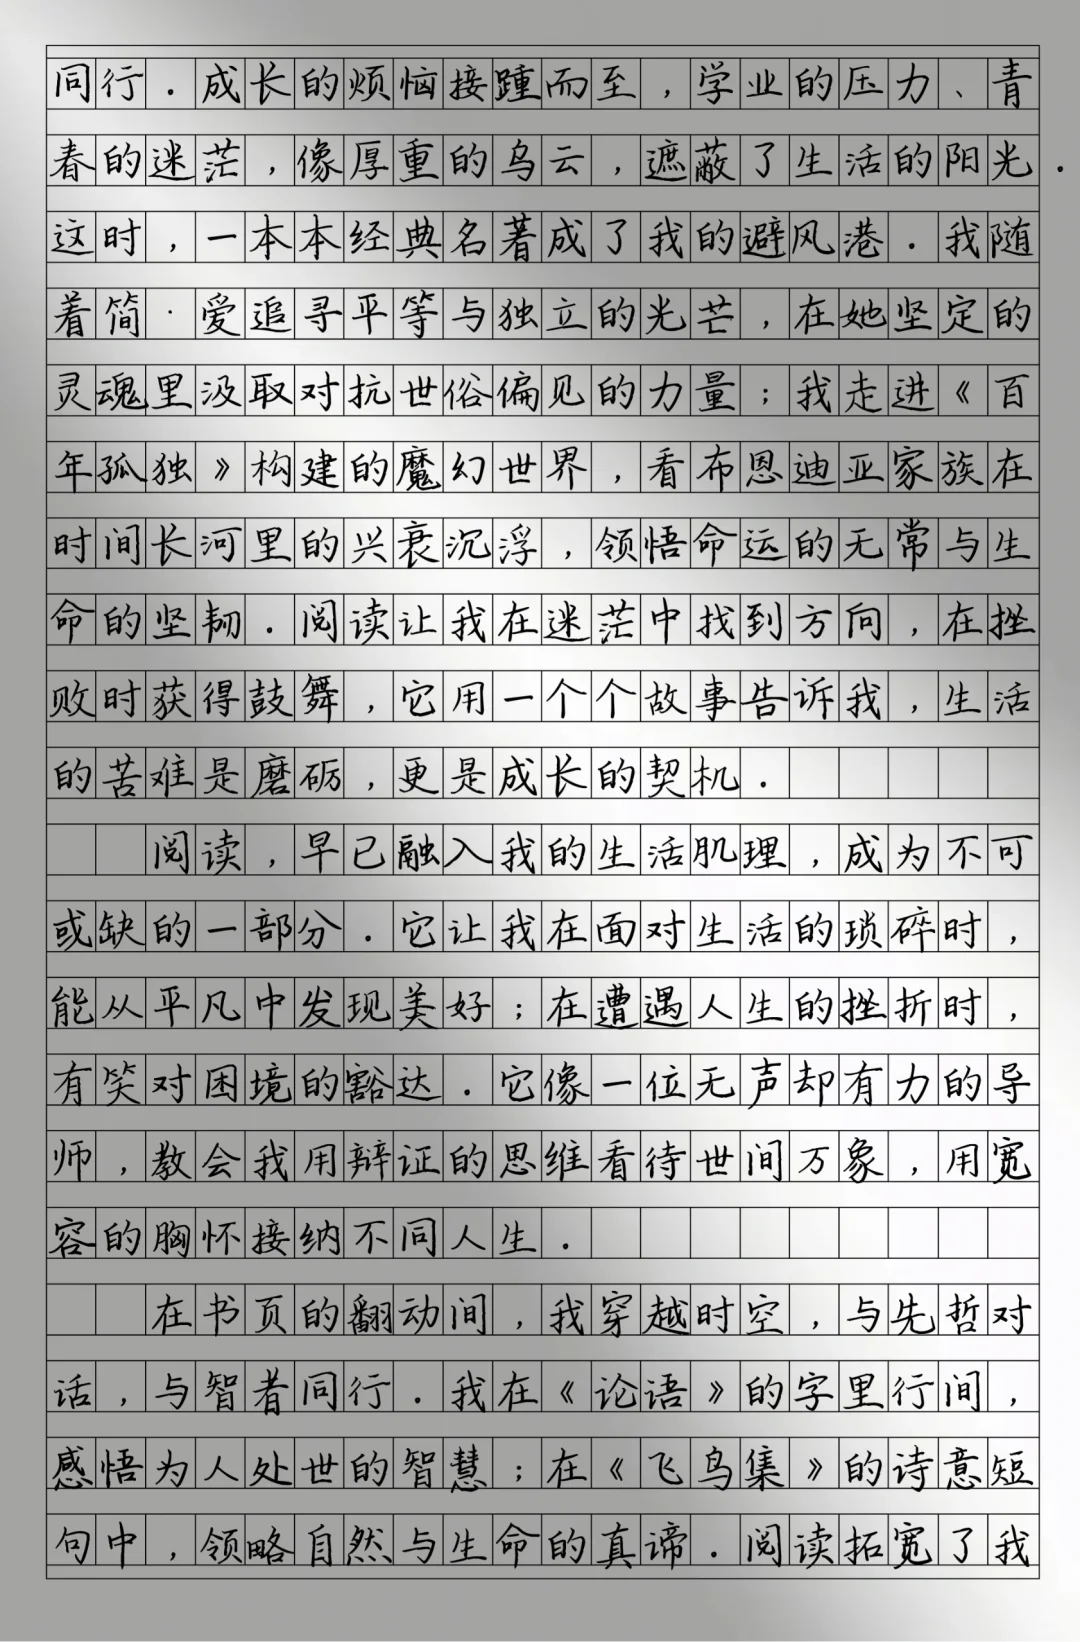 同行.成长的烦恼接踵而至,学业的压力、青
春的迷茫,像厚重的乌云,遮蔽了生活的阳光.
这时,一本本经典名著成了我的避风港.我随
着简·爱追寻平等与独立的光芒,在她坚定的
灵魂里汲取对抗世俗偏见的力量;我走进《百
年孤独》构建的魔幻世界,看布恩迪亚家族在
时间长河里的兴衰沉浮,领悟命运的无常与生
命的坚韧.阅读让我在迷茫中找到方向,在挫
败时获得鼓舞,它用一个个故事告诉我,生活
的苦难是磨砺,更是成长的契机.
阅读,早已融入我的生活肌理,成为不可
或缺的一部分.它让我在面对生活的琐碎时,
能从平凡中发现美好;在遭遇人生的挫折时,
有笑对困境的豁达.它像一位无声却有力的导
师,教会我用辩证的思维看待世间万象,用宽
容的胸怀接纳不同人生.
在书页的翻动间,我穿越时空,与先哲对
话,与智者同行.我在《论语》的字里行间,
感悟为人处世的智慧;在《飞鸟集》的诗意短
句中,领略自然与生命的真谛.阅读拓宽了我